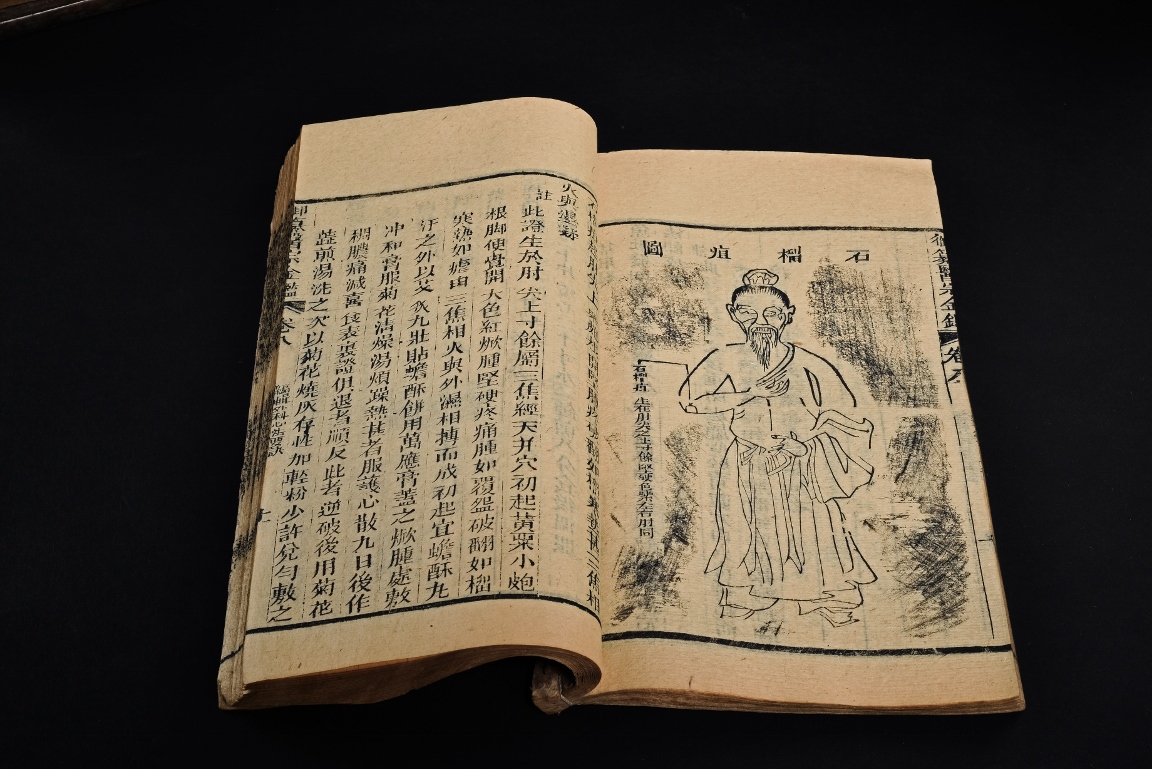 御纂醫宗金鑑
石榴疽圖
石榴疽
生在肘尖之上寸餘堅色紫左右肘同
火與濕凝
註此證生於肘尖上寸餘屬三焦經天井穴初起黃粟小皰
根脚便覺開大色紅焮腫堅硬疼痛腫如覆盌破翻如榴
寒熱如瘧由三焦相火與外濕相搏而成初起宜蟾酥丸
汗之外以艾灸九壯貼蟾酥餅用萬應膏蓋之焮腫處敷
冲和膏服菊花清燥湯煩躁熱甚者服護心散九日後作
稠膿痛減喜食表裏證俱退者順反此者逆破後用菊花
蕋煎湯洗之次以菊花燒灰存性加輕粉少許兌勻敷之
御纂醫宗金鑑 卷八